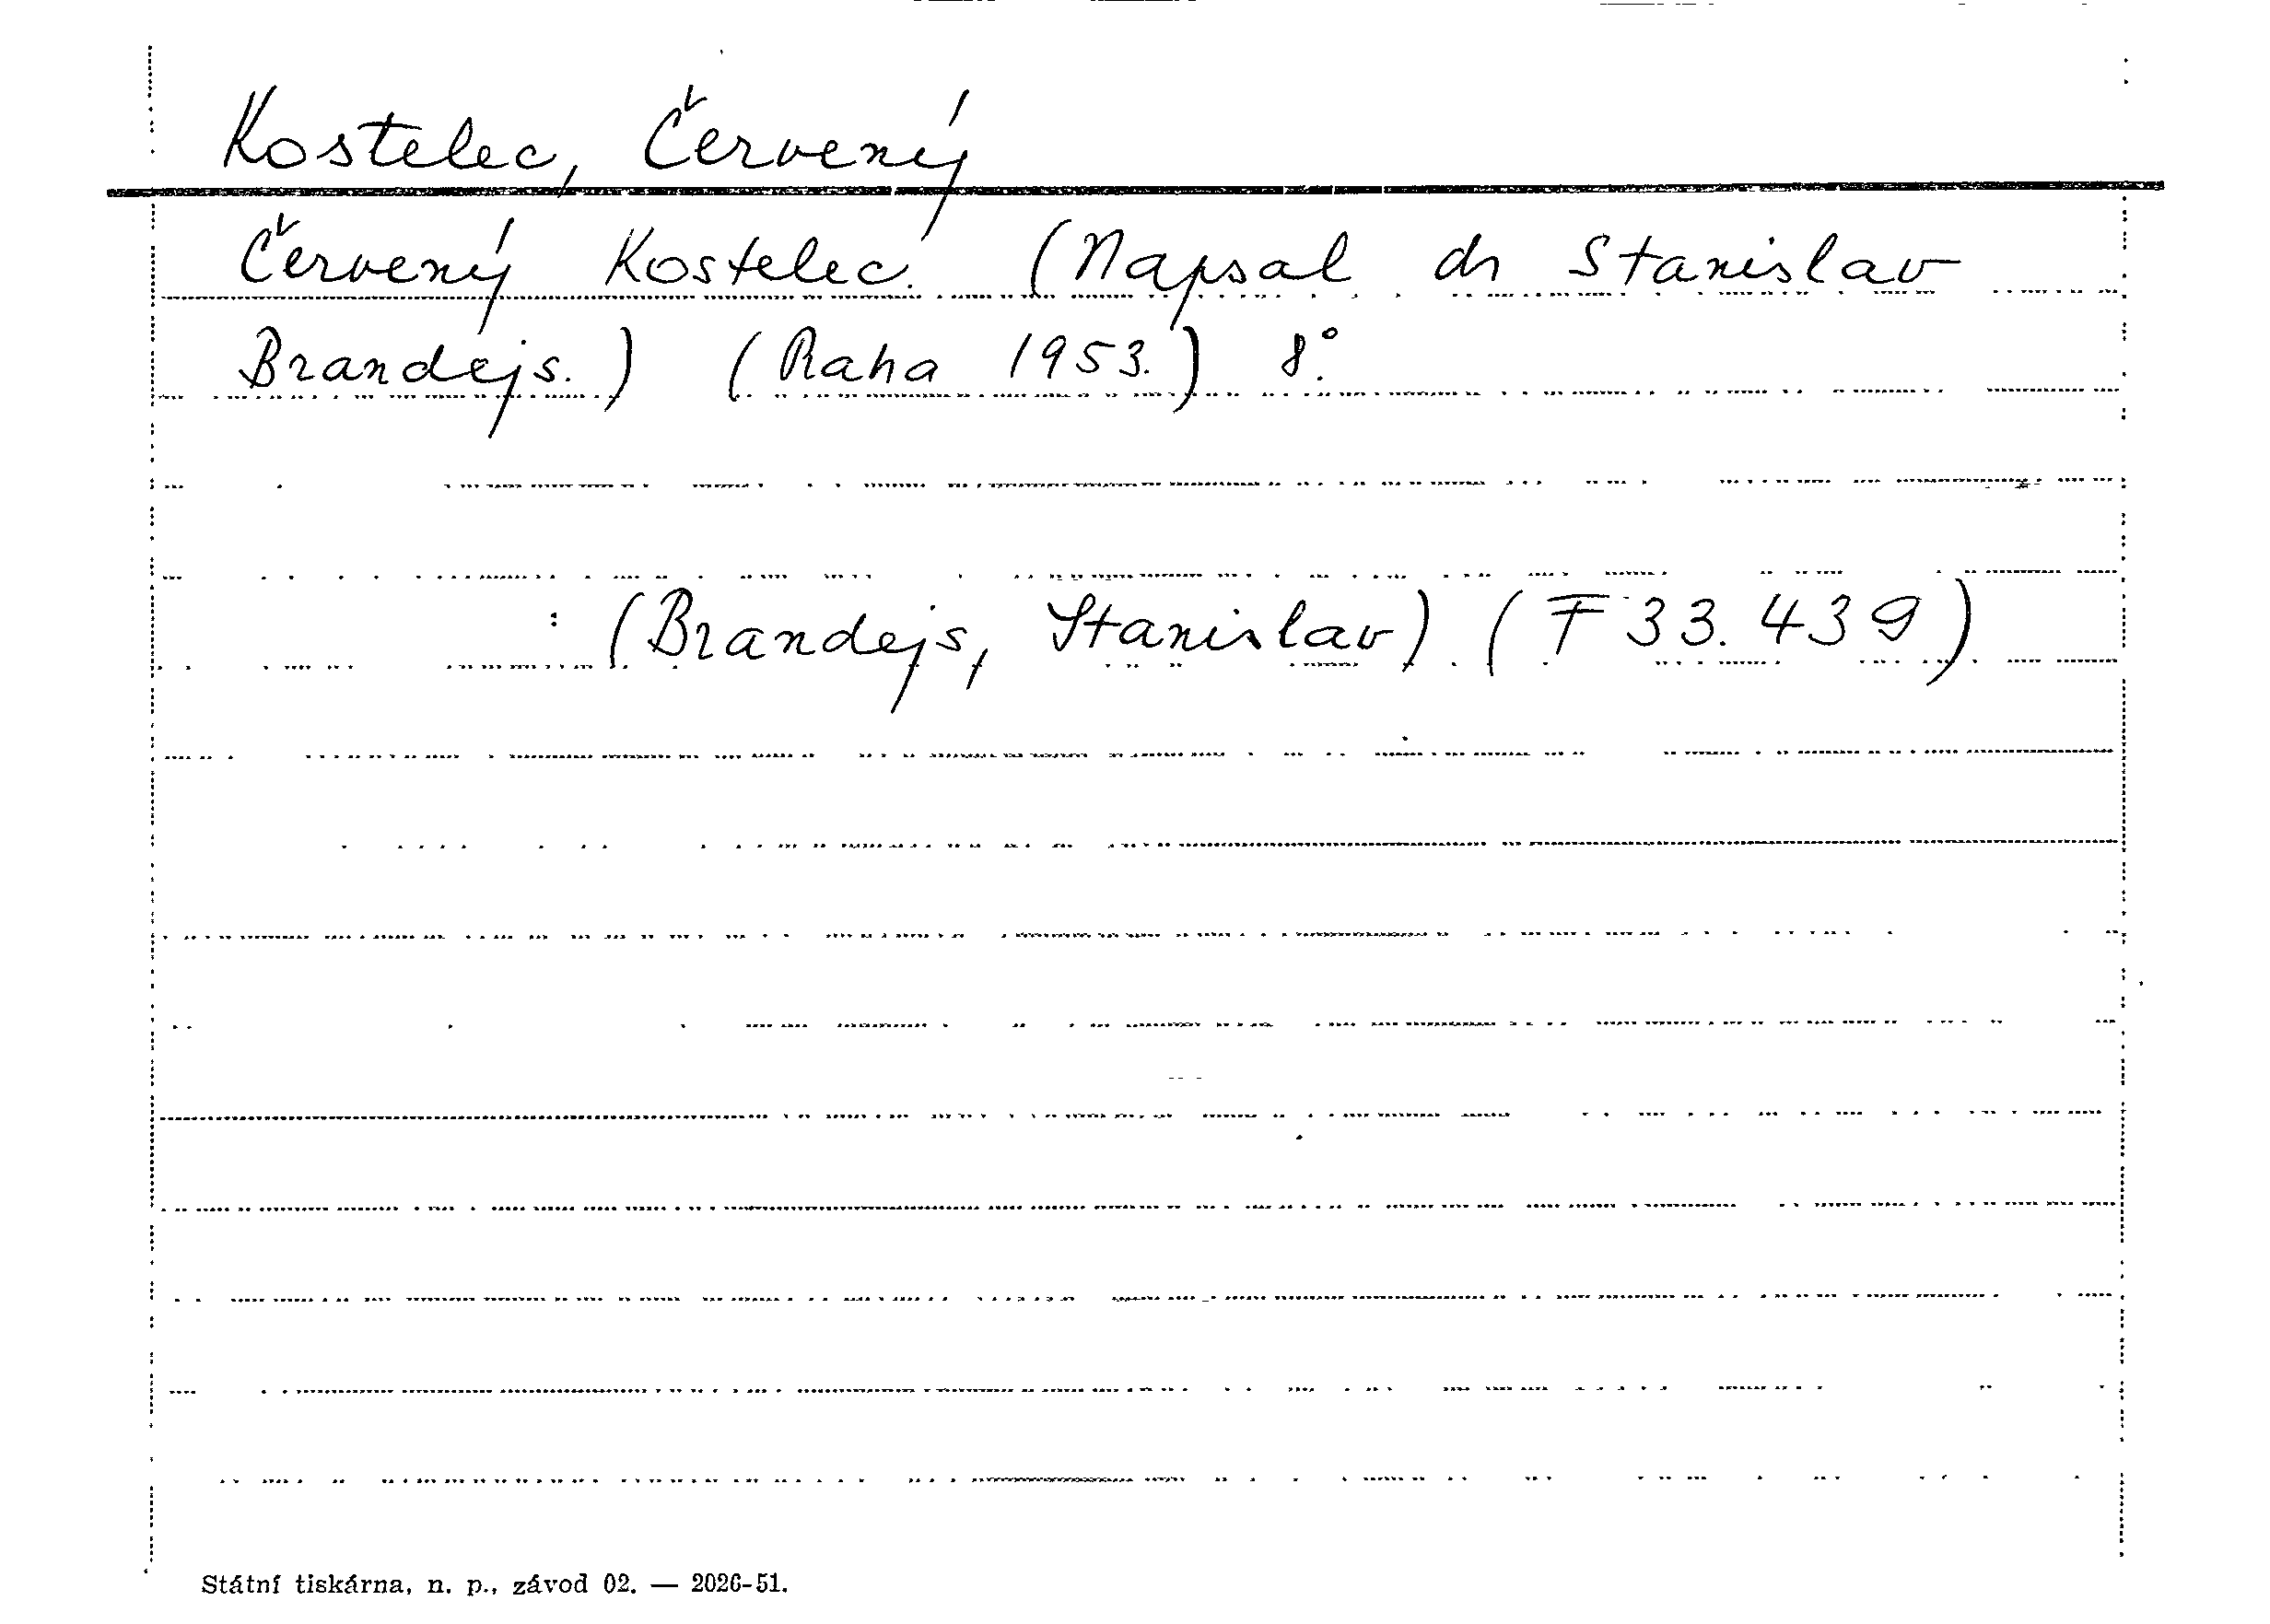 Kostelec, Červený
Červený Kostelec. (Napsal dr Stanislav
Brandejs.) (Praha 1953.) 8°.
: (Brandejs, Stanislav) (F 33.439)
Státní tiskárna, n. p., závod 02. — 2026-51.